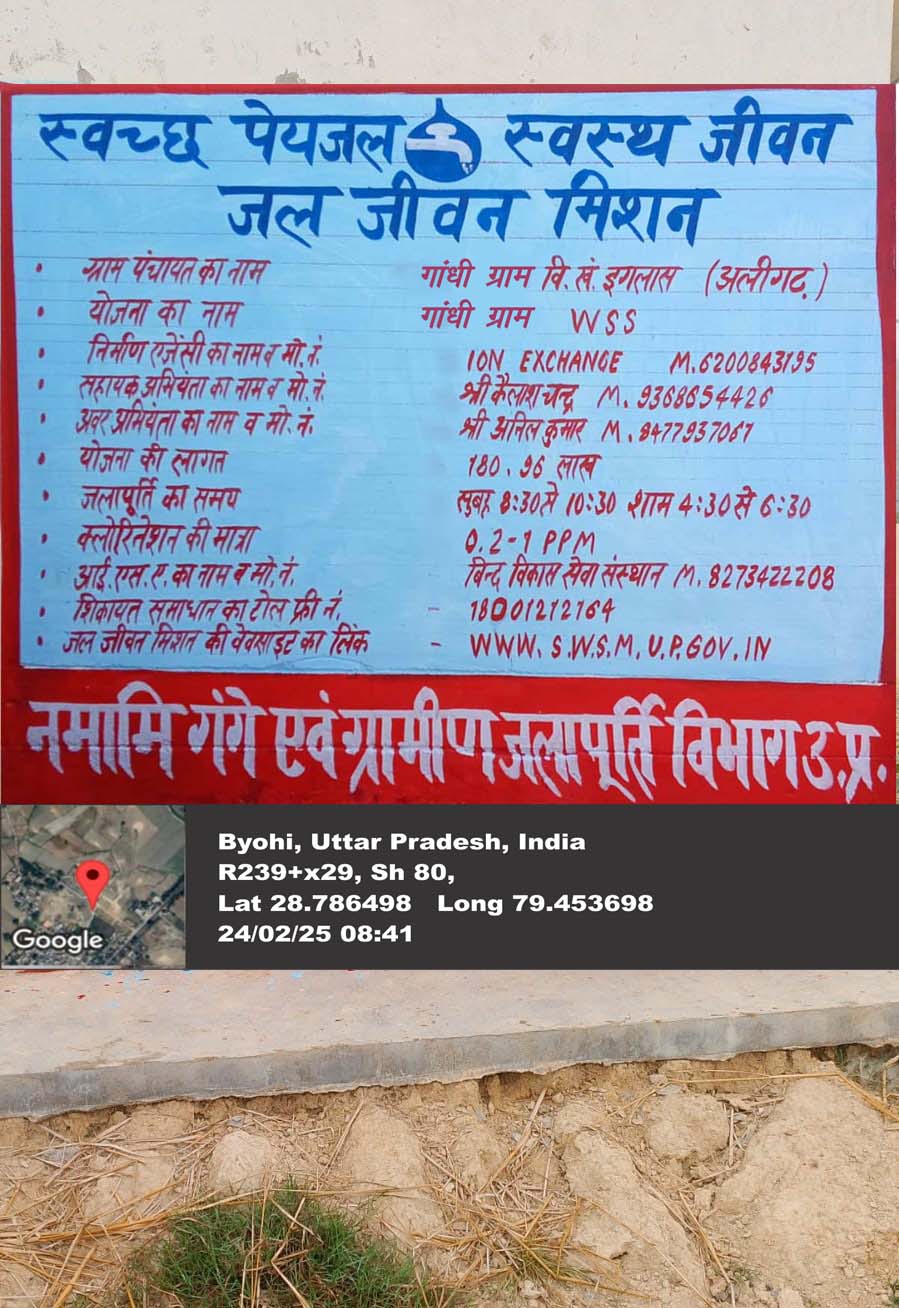 स्वच्छ पेयजल स्वस्थ जीवन
जल जीवन मिशन
• ग्राम पंचायत का नाम गांधी ग्राम वि. खं. इगलास (अलीगढ़)
• योजना का नाम गांधी ग्राम WSS
• निर्माण एजेंसी का नाम व मो. नं. ION EXCHANGE M.6200843195
• सहायक अभियंता का नाम व मो. नं. श्री कैलाश चन्द्र M. 9368654426
• अवर अभियंता का नाम व मो. नं. श्री अनिल कुमार M. 8477937061
• योजना की लागत 180.96 लाख
• जलापूर्ति का समय सुबह 8:30 से 10:30 शाम 4:30 से 6:30
• क्लोरिनेशन की मात्रा 0.2-1 PPM
• आई. एस. ए. का नाम व मो. नं. बिन्द विकास सेवा संस्थान M. 8273422208
• शिकायत समाधान का टोल फ्री नं. - 18001212164
• जल जीवन मिशन की वेवासाइट का लिंक - WWW. S.W.S.M. U.P.GOV.IN
नमामि गंगे एवं ग्रामीण जलापूर्ति विभाग उ.प्र.
Byohi, Uttar Pradesh, India
R239+x29, Sh 80,
Lat 28.786498 Long 79.453698
24/02/25 08:41
Google